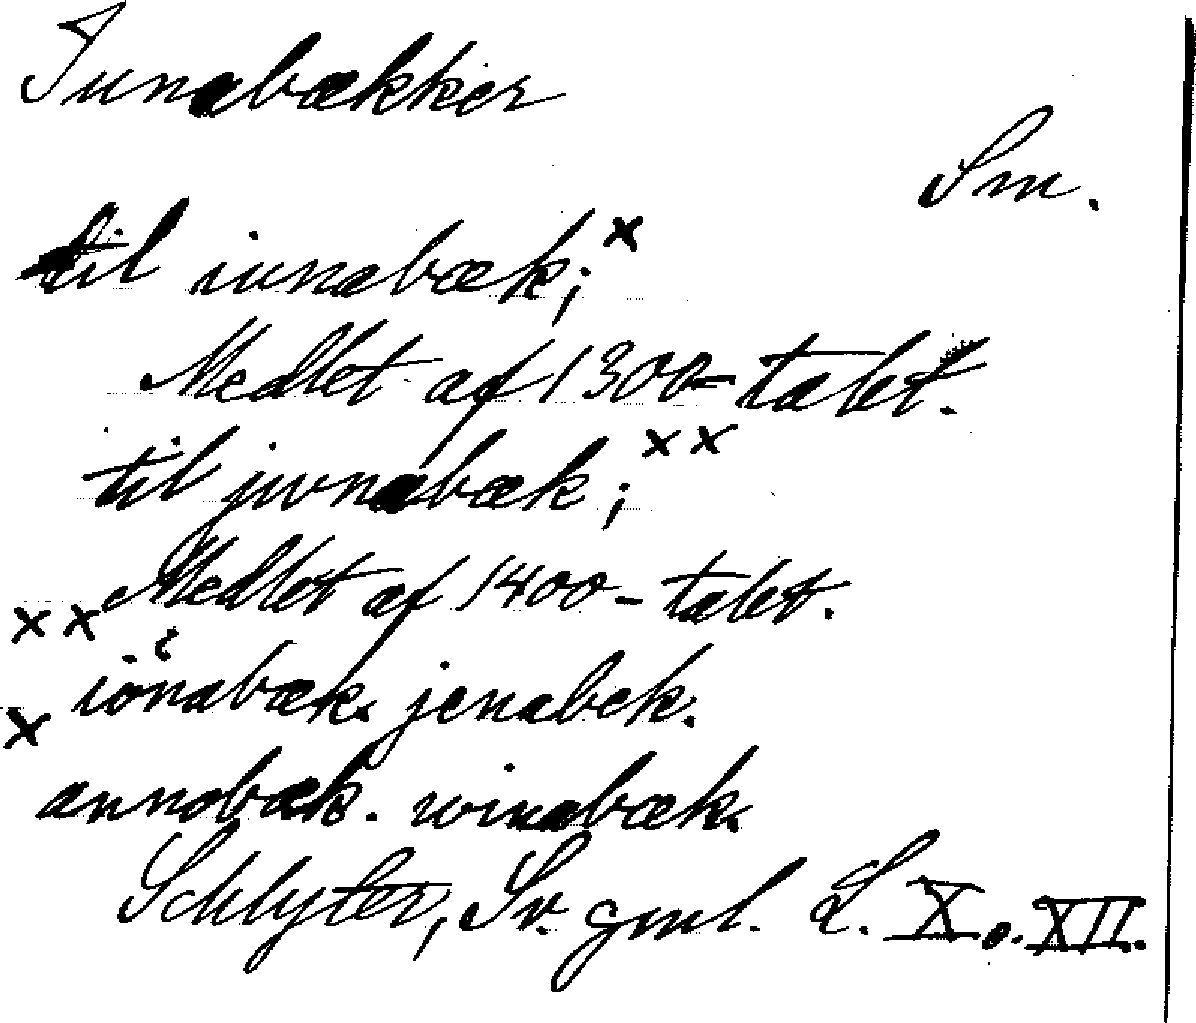 Iunabækker
Sm.
til iunabæk;×
Medlet af 1300-talet.
til jwnabæk; ××
Medlet af 1400-talet.
×× iönabæk. jenabek.
× annobæk. winabæk.
Schlyter, Sv. gml. L. X o. XII.